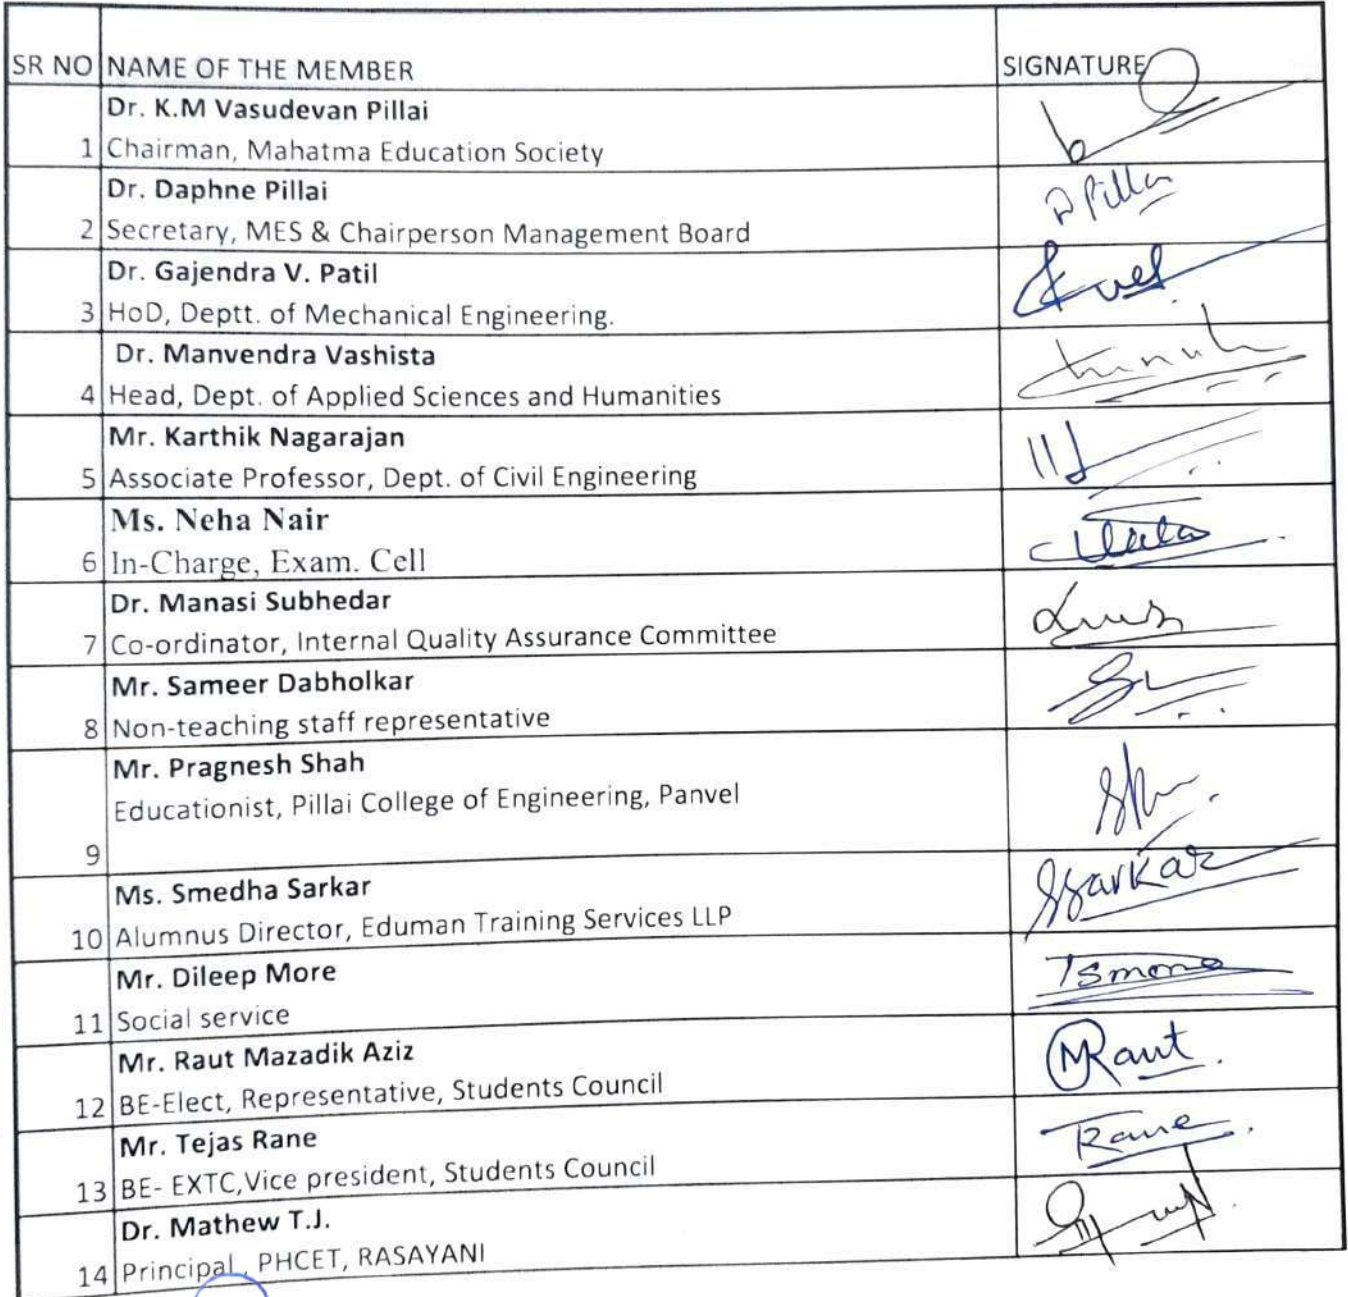 SR NO NAME OF THE MEMBER SIGNATURE
Dr. K.M Vasudevan Pillai
1 Chairman, Mahatma Education Society
Dr. Daphne Pillai
2 Secretary, MES & Chairperson Management Board
Dr. Gajendra V. Patil
3 HoD, Deptt. of Mechanical Engineering.
Dr. Manvendra Vashista
4 Head, Dept. of Applied Sciences and Humanities
Mr. Karthik Nagarajan
5 Associate Professor, Dept. of Civil Engineering
Ms. Neha Nair
6 In-Charge, Exam. Cell
Dr. Manasi Subhedar
7 Co-ordinator, Internal Quality Assurance Committee
Mr. Sameer Dabholkar
8 Non-teaching staff representative
Mr. Pragnesh Shah
Educationist, Pillai College of Engineering, Panvel
9
Ms. Smedha Sarkar
10 Alumnus Director, Eduman Training Services LLP
Mr. Dileep More
11 Social service
Mr. Raut Mazadik Aziz
MRaut
12 BE-Elect, Representative, Students Council
Mr. Tejas Rane
Rane
13 BE- EXTC,Vice president, Students Council
Dr. Mathew T.J.
14 Principal, PHCET, RASAYANI